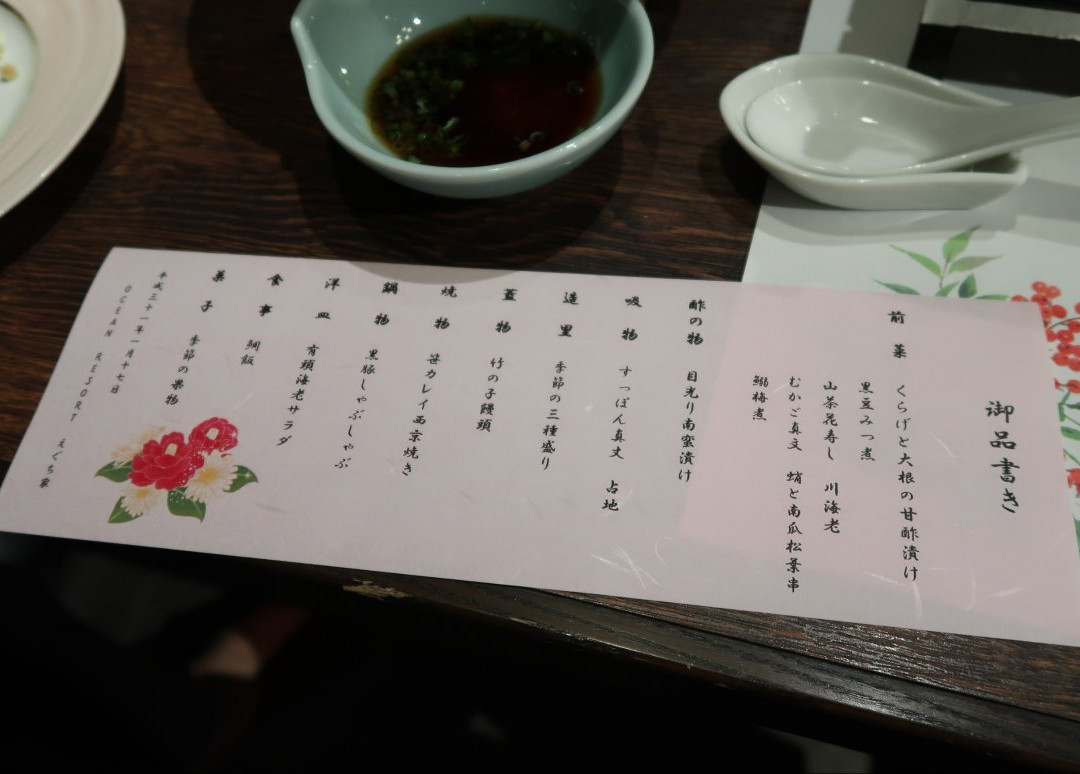 御品書き
前菜 くらげと大根の甘酢漬け
黒豆みつ煮
山茶花寿し 川海老
むかご真丈 蛸と南瓜松葉串
鰯梅煮
酢の物 目光り南蛮漬け
吸物 すっぽん真丈 占地
造里 季節の三種盛り
蓋物 竹の子饅頭
焼物 笹カレイ西京焼き
鍋物 黒豚しゃぶしゃぶ
洋皿 有頭海老サラダ
食事 鯛飯
菓子 季節の果物
平成三十一年一月十七日
OCEAN RESORT えぐち家